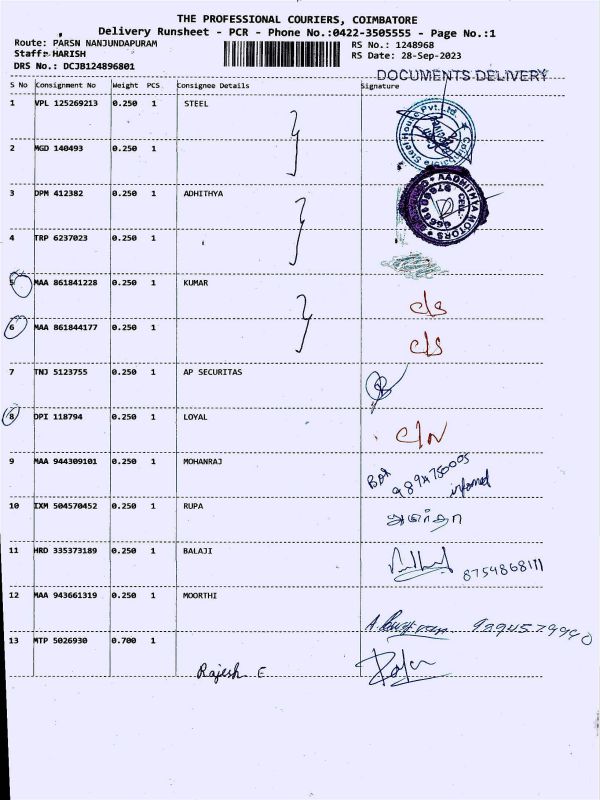 THE PROFESSIONAL COURIERS, COIMBATORE
Delivery Runsheet - PCR - Phone No.:0422-3505555 - Page No.:1
Route: PARSN NANJUNDAPURAM RS No.: 1248968
Staff: HARISH RS Date: 28-Sep-2023
DRS No.: DCJB124896801
DOCUMENTS DELIVERY
S No Consignment No Weight PCS Consignee Details Signature
1 VPL 125269213 0.250 1 STEEL
Steel House Pvt. Ltd. Coimbatore
2 MGD 140493 0.250 1
3 DPM 412382 0.250 1 ADHITHYA
AADHITHYA MOTORS
4 TRP 6237023 0.250 1
5 MAA 861841228 0.250 1 KUMAR c/s
6 MAA 861844177 0.250 1 c/s
7 TNJ 5123755 0.250 1 AP SECURITAS
8 DPI 118794 0.250 1 LOYAL C/N
9 MAA 944309101 0.250 1 MOHANRAJ
9894750005 informed
10 IXM 504570452 0.250 1 RUPA
11 HRD 335373189 0.250 1 BALAJI
8754868111
12 MAA 943661319 0.250 1 MOORTHI
9294579990
13 MTP 5026930 0.700 1
Rajesh E